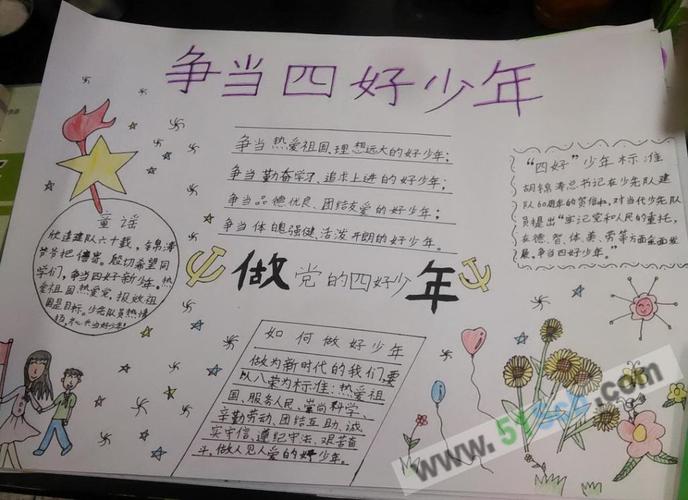 争当四好少年
争当热爱祖国、理想远大的好少年；
争当勤奋学习、追求上进的好少年；
争当品德优良、团结友爱的好少年；
争当体魄强健、活泼开朗的好少年。
"四好"少年标准
胡锦涛总书记在少先队建
队60周年的贺信和，对当代少先队
员提出"牢记党和人民的重托，
在德、智、体、美、劳等方面全面发
展，争当四好少年。
童谣
欣逢建队六十载，
爷爷把信寄。殷切希望同
学们，争当四好新少年。热
爱祖国热爱党，报效祖
国是目标。少先队员热情
做党的四好少年
如何做好少年
做为新时代的我们，要
以八荣为标准：热爱祖
国、服务人民、崇尚科学、
辛勤劳动、团结互助、诚
实守信、遵纪守法、艰苦奋
斗。做人见人爱的好少年。
www.5ysch.com